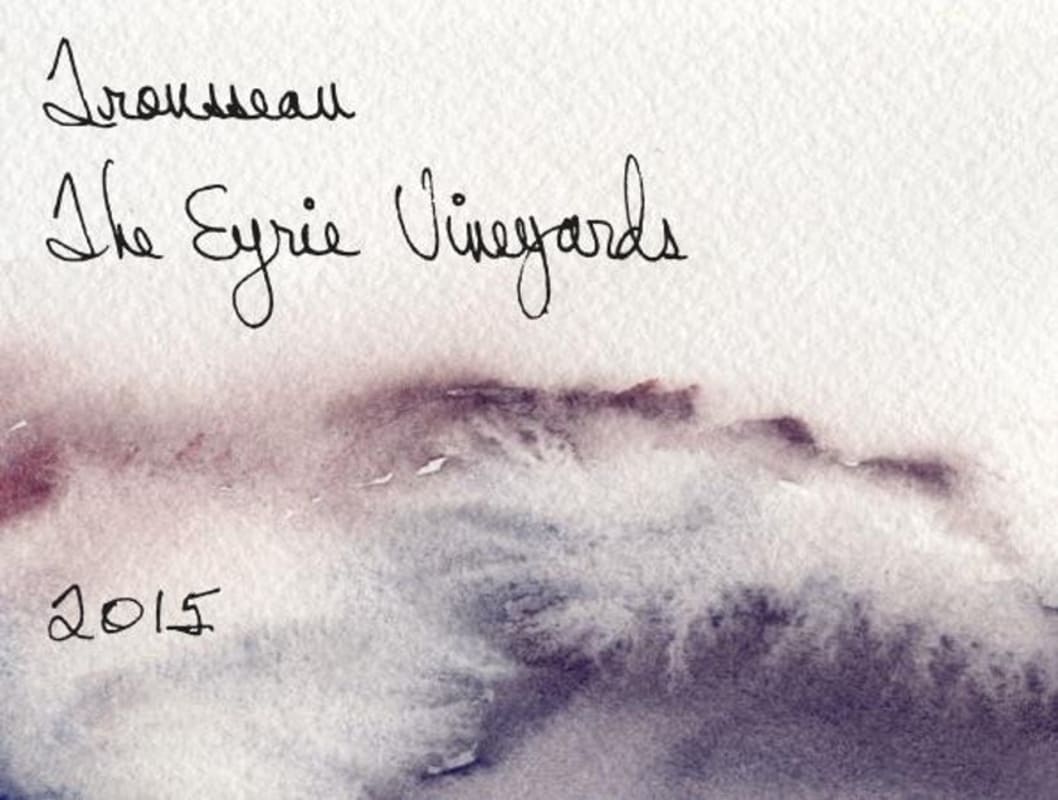 Trousseau
The Eyrie Vineyards
2015